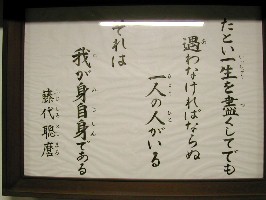 たとい一生を尽くしてでも
遇わなければならぬ
一人の人がいる
それは
我が身自身である
藤代聡麿